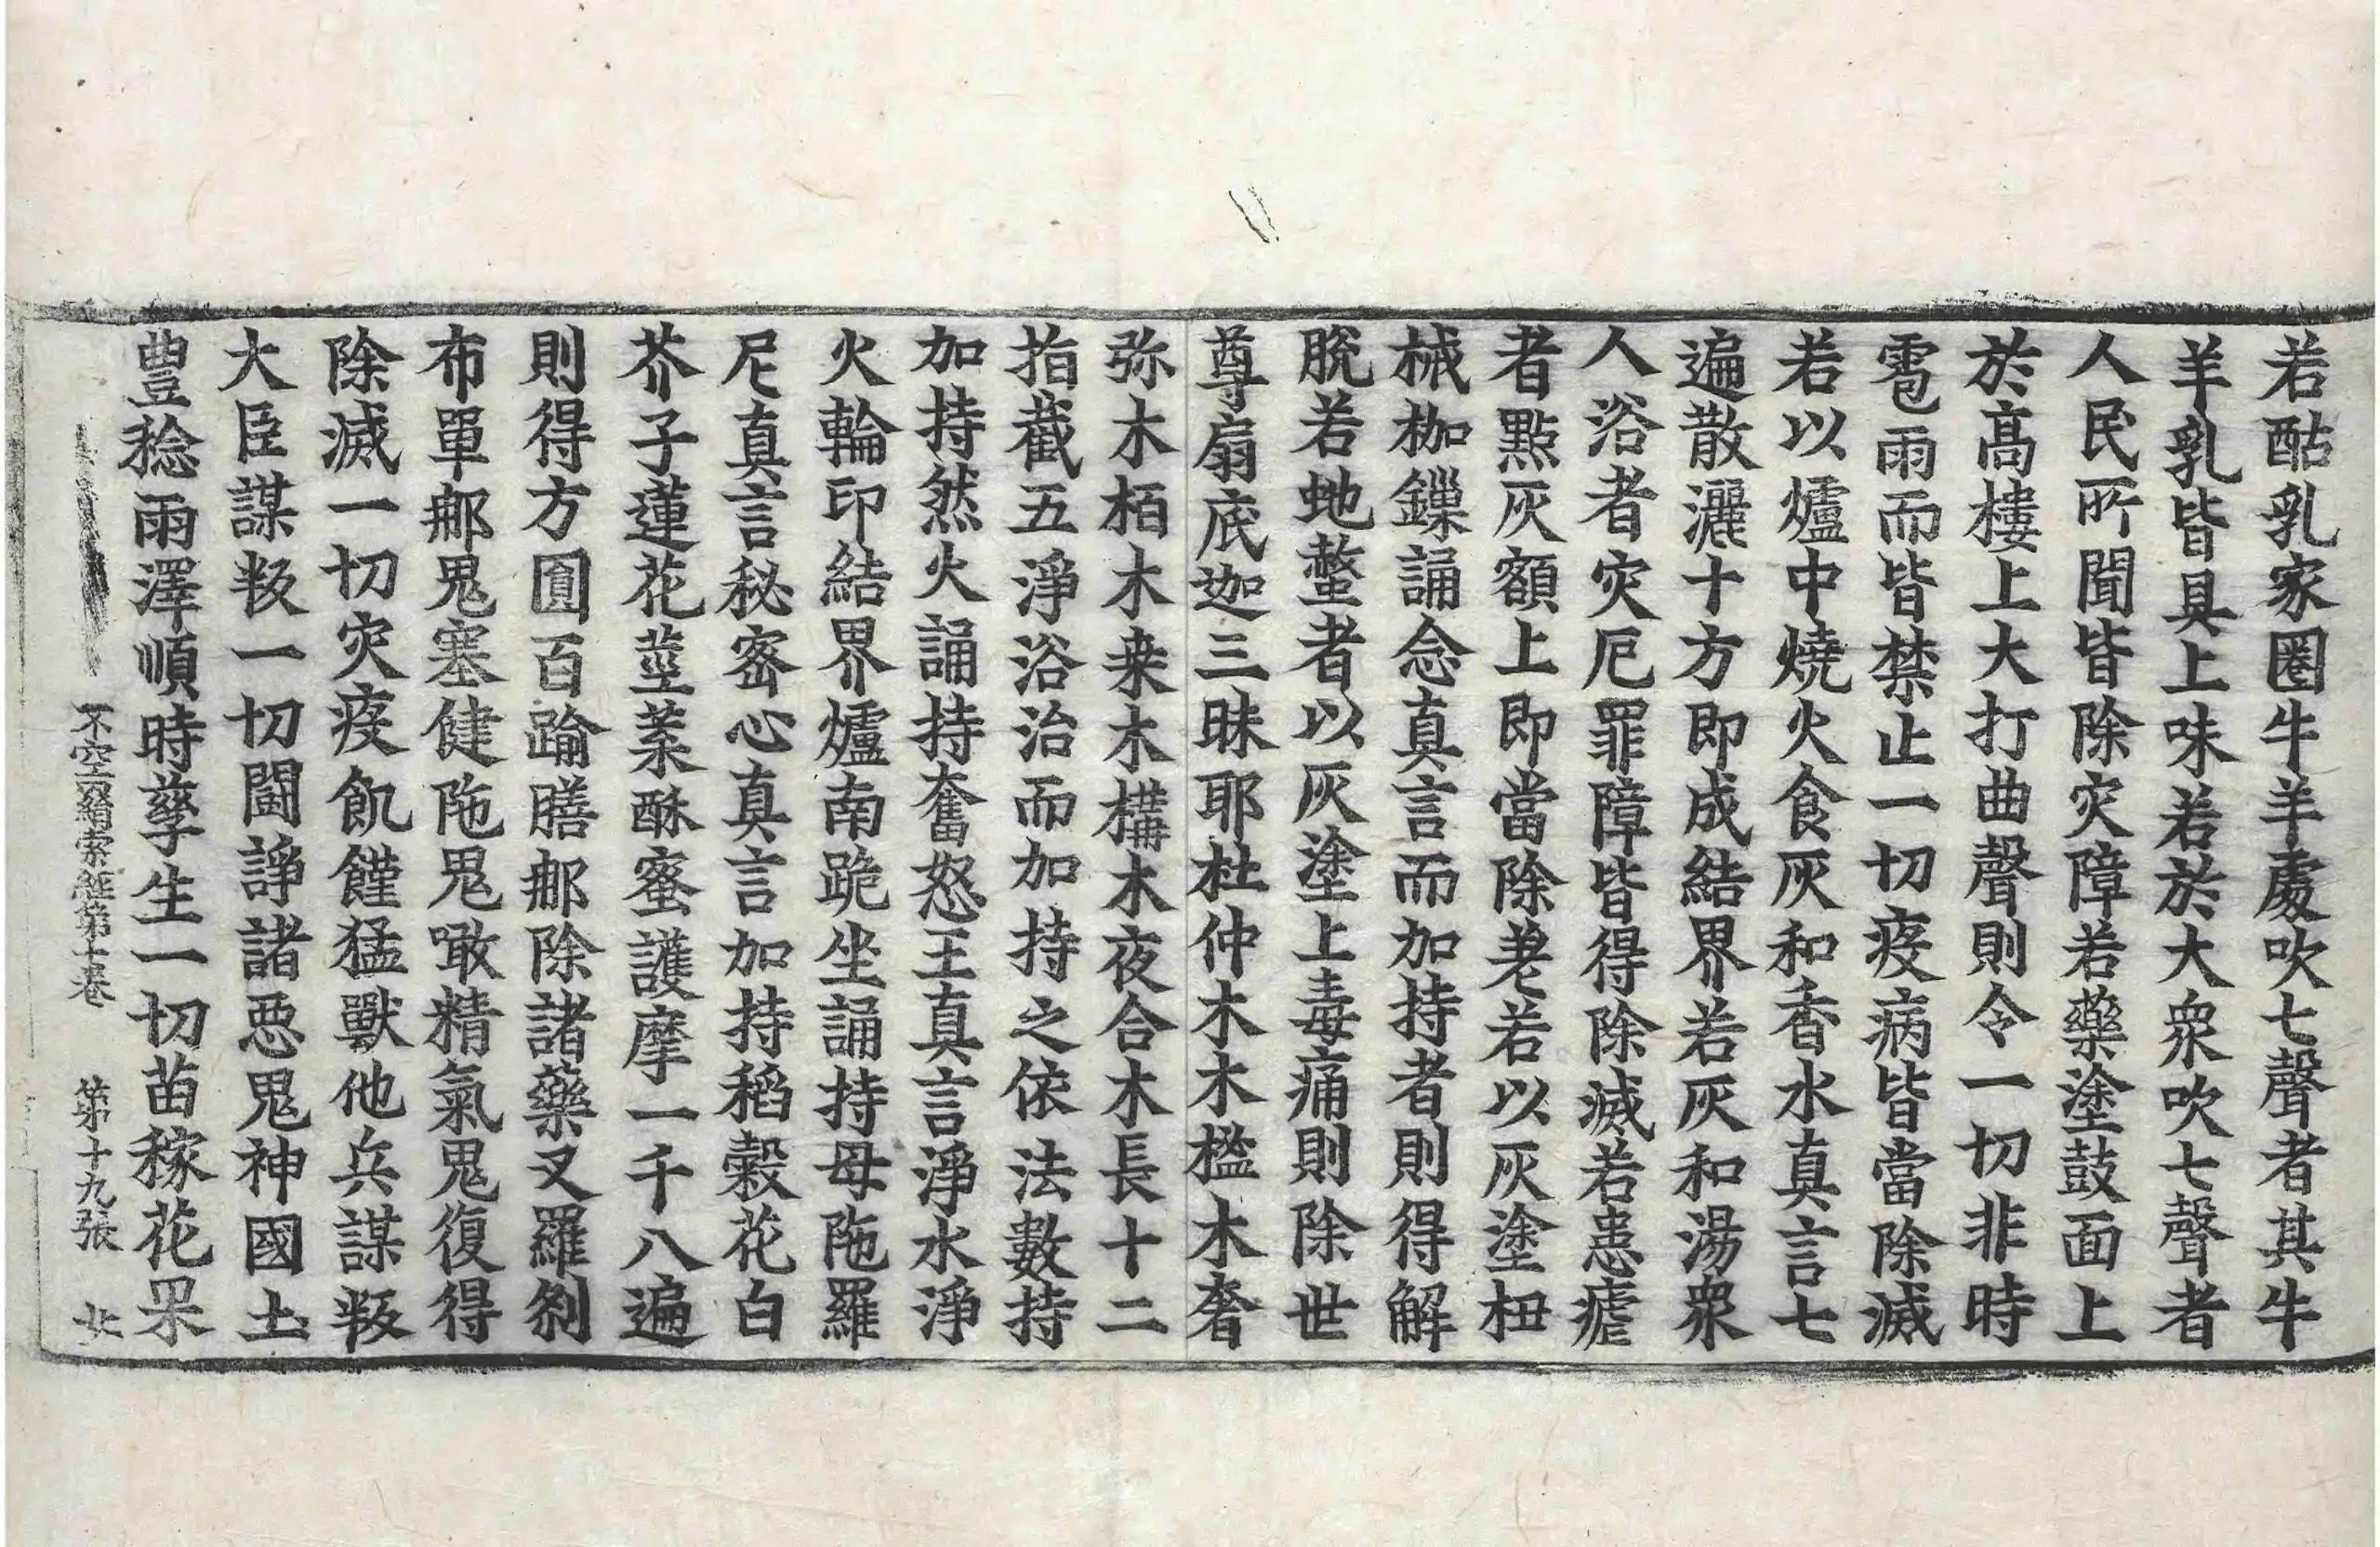 若酤乳家圈牛羊處吹七聲者其牛
羊乳皆具上味若於大衆吹七聲者
人民所聞皆除灾障若藥塗鼓面上
於髙樓上大打曲聲則令一切非時
雹雨而皆禁止一切疫病皆當除滅
若以爐中燒火食灰和香水真言七
遍散灑十方即成結界若灰和湯衆
人浴者灾厄罪障皆得除滅若患瘧
者點灰額上即當除差若以灰塗杻
械枷鏁誦念真言而加持者則得解
脫若虵螫者以灰塗上毒痛則除世
尊扇底迦三昧耶杜仲木木檻木奢
弥木栢木桒木構木夜合木長十二
指截五淨浴治而加持之依法數持
加持然火誦持奮怒王真言淨水淨
火輪印結界爐南跪坐誦持母陁羅
尼真言秘密心真言加持稻穀花白
芥子蓮花莖葉酥蜜護摩一千八遍
則得方圓百踰膳那除諸藥叉羅剎
布單那鬼塞健陁鬼噉精氣鬼復得
除滅一切灾疫飢饉猛獸他兵謀叛
大臣謀叛一切鬪諍諸惡鬼神國土
豊稔雨澤順時孳生一切苗稼花果
不空羂索經第十卷 第十九張